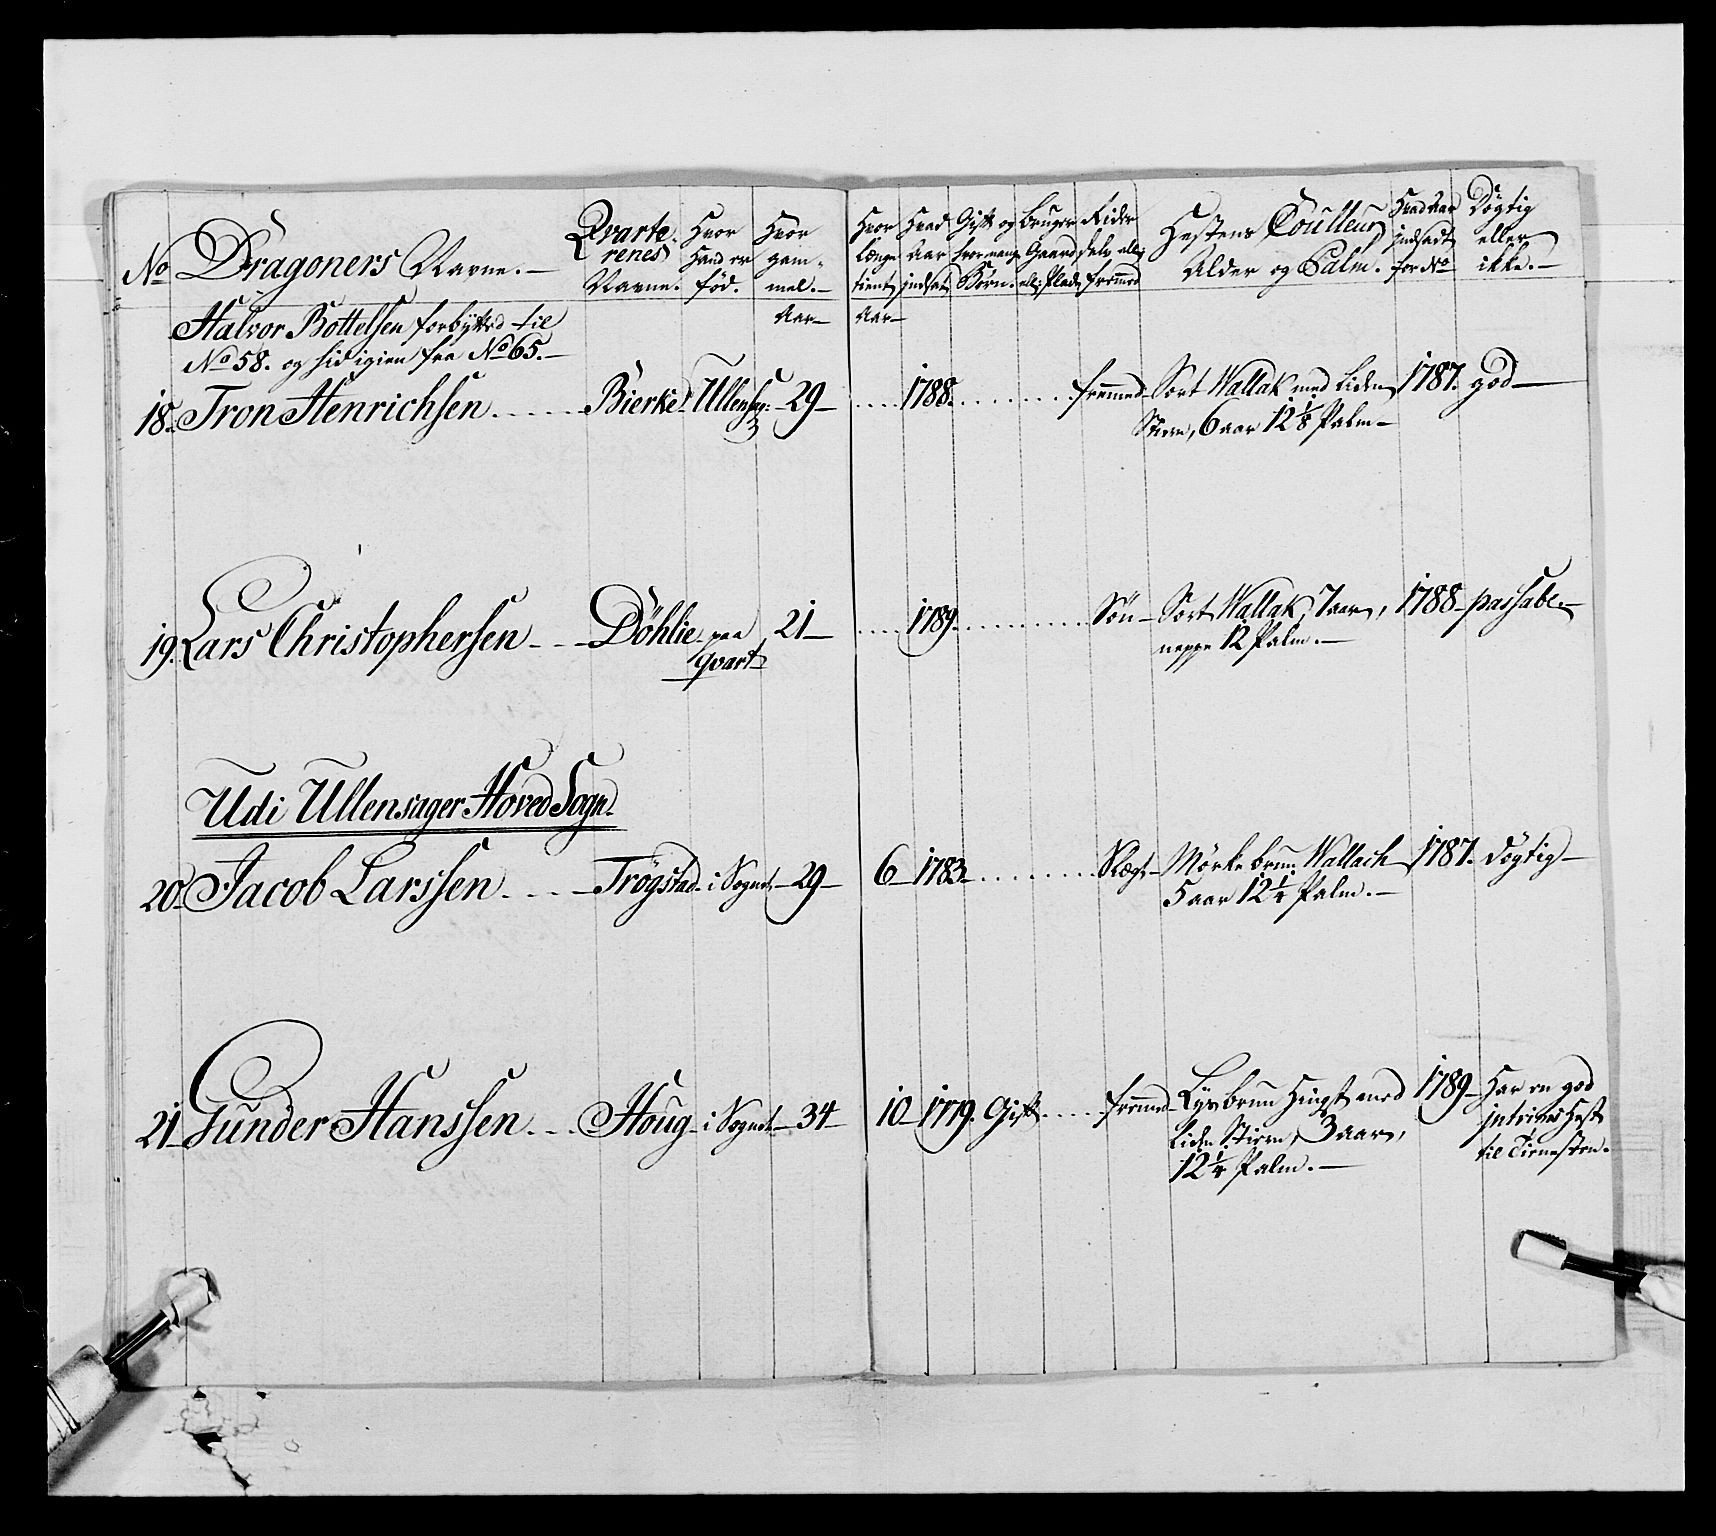 No Dragoners Navne.
Qvarterenes Navne.
Hvor Hand er föd.
Hvor gammel. Aar
Hvor længe tient Aar
Hvad Aar indsat
Gift og hvor mange Börn.
Bruger Gaard ell: Plads
Rider selv ell: fremmed
Hestens Coulleur, Alder og Palm.
Hvad Aar indsadt for No
Dögtig eller ikke.
Halvor Bottelsen forbytted til
No 58. og sid igien fra No 65.
18. Tron Henrichsen. Bierke Ullensag: 29 1788. fremmed Sort Wallak med liden 1787. god
Stiern, 6 aar 12 1/8 Palm
19. Lars Christophersen Döhlie paa 21 1789. Sön Sort Wallak, 7 aar, 1788 passabe.
qvart neppe 12 Palm.
Udi Ullensager Hoved Sogn.
20. Jacob Larssen. Trögstad i Sognet 29 6 1783. Slægt Mörkebrun Wallach 1787. dögtig
5 aar 12 1/4 Palm.
21 Gunder Hanssen. Houg i Sognet 34 10 1779. Gift fremmed Lysbrun Hingst med 1789 Har en god
liden Stiern, 3 aar, intrims Hest
12 1/4 Palm. til Tienesten.